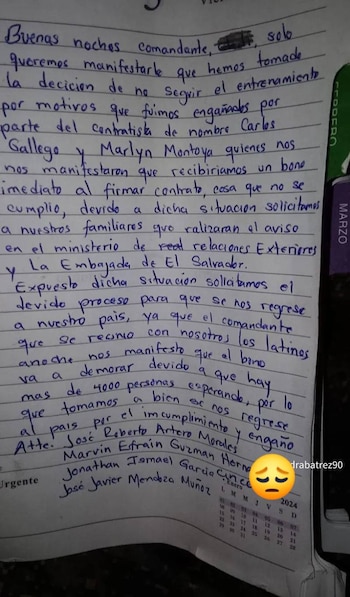 Buenas noches comandante, solo
queremos manifestarle que hemos tomado
la decicion de no seguir el entrenamiento
por motivos que fuimos engañados por
parte del contratista de nombre Carlos
Gallego y Marlyn Montoya quienes nos
nos manifestaron que recibiriamos un bono
imediato al firmar contrato, cosa que no se
cumplio, devido a dicha situacion solicitamos
a nuestros familiares que ralizaran el aviso
en el ministerio de relaciones Exterieres
y La Embajada de El Salvador.
Expuesto dicha situacion solicitamos el
devido proceso para que se nos regrese
a nuestro pais, ya que el comandante
que se reunio con nosotros los latinos
anoche nos manifesto que el bino
va a demorar devido a que hay
mas de 4000 personas esperando, por lo
que tomamos a bien se nos regrese
al pais por el imcumplimiento y engaño
Atte. José Roberto Artero Morales
Marvin Efrain Guzman
Jonathan Ismael
José Javier Mendoza Muñoz
drabatrez90
Urgente
2024
L M M J V S D
FEBRERO
MARZO